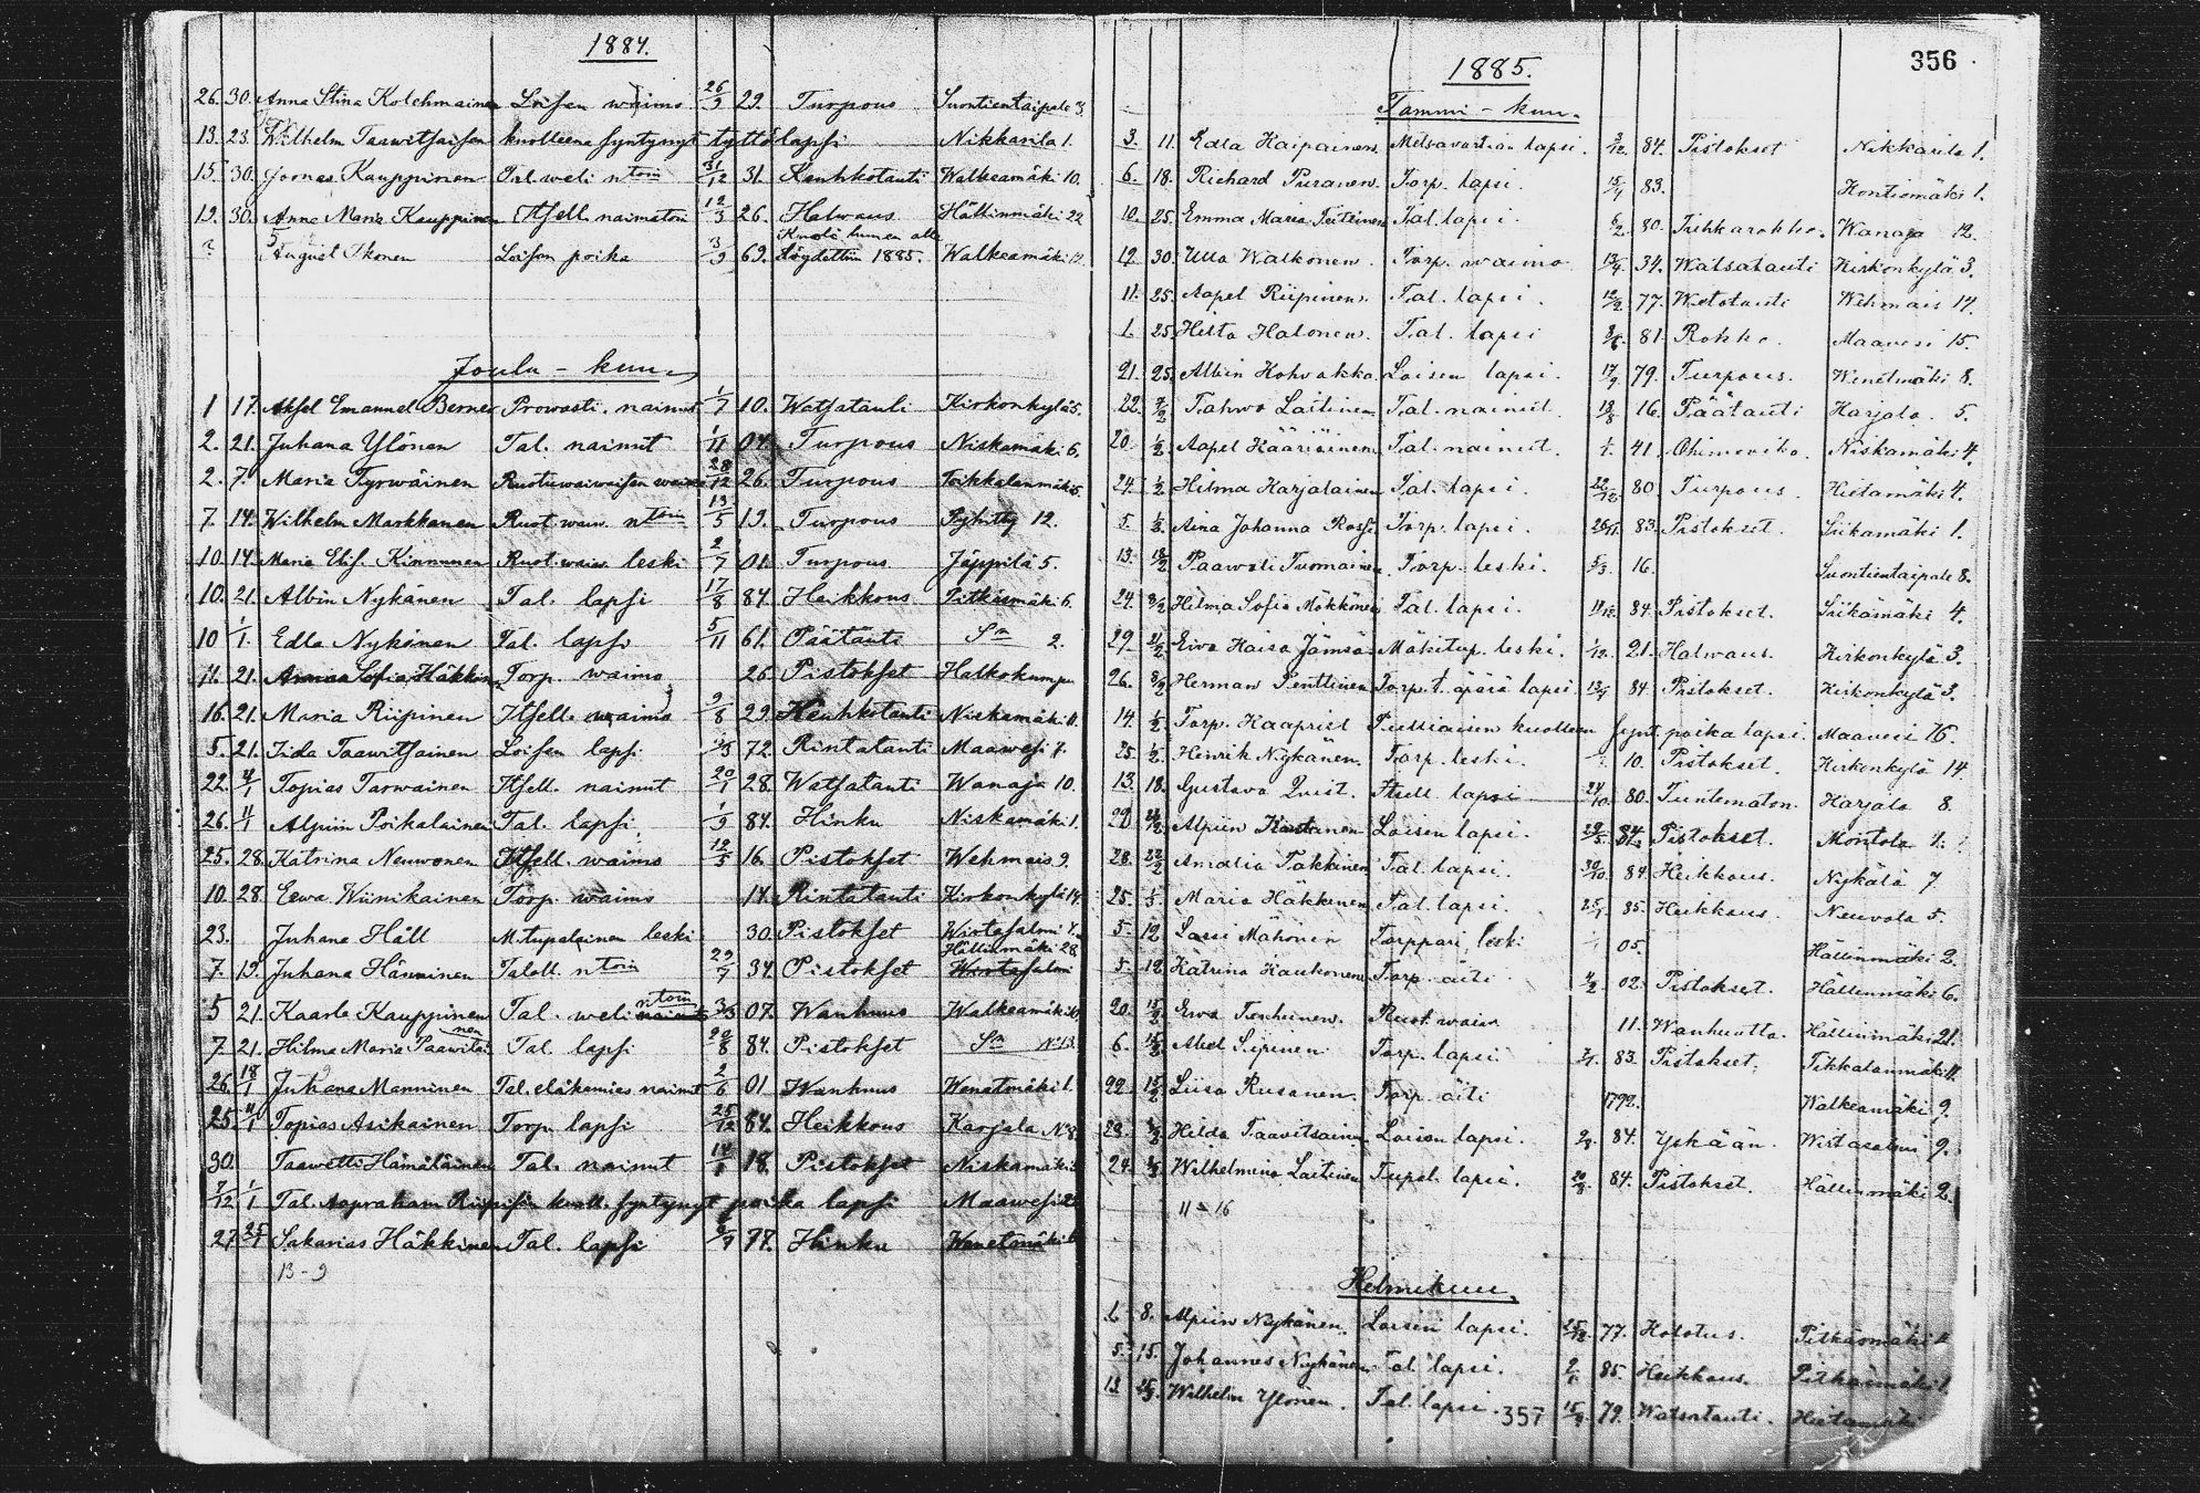 1884.
26. 30. Anna Stina Kolehmainen Loisen waimo 26/9 29. Turpous Suontientaipale 3.
13. 23. Wilhelm Taawitsaisen kuolleena syntynyt tyttölapsi Nikkarila 1.
15. 30. Joonas Kauppinen Tal. weli ntoin 31/12 31. Keuhkotauti Walkeamäki 10.
19. 30. Anna Maria Kauppinen Itsell. naimatoin 12/3 26. Halwaus Hällinmäki 22
Kuoli lumen alle
? August Ikonen Loisen poika 3/9 69. löydettiin 1885. Walkeamäki
Joulu - kuu
1 17. Aksel Emanuel Berner Prowasti. nainut 1/7 10. Watsatauti Kirkonkylä 5.
2. 21. Juhana Ylönen Tal. nainut 1/11 04. Turpous Niskamäki 6.
2. 7. Maria Tyrwäinen Ruotuwaiwaisen waimo 28/12 26. Turpous Toikkalanmäki 5.
7. 14. Wilhelm Markkanen Ruot. waiw. ntoin 13/5 19. Turpous Pyhitty 12.
10. 14. Maria Elis. Kinnunen Ruot. waiw. leski 2/7 01. Turpous Jäppilä 5.
10. 21. Albin Nykänen Tal. lapsi 17/8 84. Heikkous Pitkäsmäki 6.
10 1/1. Edla Nykänen Tal. lapsi 5/11 61. Päätauti Sm 2.
11. 21. Annaa Sofia Häkkinen Torp. waimo 26. Pistokset Halkokumpu
16. 21. Maria Riipinen Itsell. waimo 9/8 29. Keuhkotauti Niskamäki 11.
5. 21. Iida Taawitsainen Loisen lapsi 72. Rintatauti Maawesi 7.
22. 4/1 Topias Tarwainen Itsell. nainut 20/1 28. Watsatauti Wanaja 10.
26. 4/1 Alpiin Poikalainen Tal. lapsi 1/9 84. Hinku Niskamäki 1.
25. 28. Katrina Neuwonen Itsell. waimo 12/5 16. Pistokset Wehmais 9.
10. 28. Eewa Wiinikainen Torp. waimo 14. Rintatauti Kirkonkylä 14.
23. Juhana Häll M. tupalainen leski 30. Pistokset Wirtasalmi 4.
Hällinmäki 28.
7. 19. Juhana Hänninen Taloll. ntoin 29/7 34. Pistokset Wirtasalmi
5 21. Kaarlo Kauppinen Tal. weli ntoin nainut 3/3 07. Wanhuus Walkeamäki 10.
7. 21. Hilma Maria Paawilainen Tal. lapsi 20/8 84. Pistokset Sm No 13.
26. 18/1 Juhana Manninen Tal. eläkemies nainut 2/6 01 Wanhuus Wenetmäki 1.
25. 11/1 Topias Asikainen Torp. lapsi 25/12 84. Heikkous Karjala No 8.
30. Taawetti Hämäläinen Tal. nainut 18. Pistokset Niskamäki
7/12 1/1 Tal. Aapraham Riipisen kuoll. syntynyt poika lapsi Maawesi
27 25/1 Sakarias Häkkinen Tal. lapsi 77. Hinku Wenetmäki
13 - 9
356
1885.
Tammi - kuu.
3. 11. Edla Haipainen. Metsävartian lapsi. 3/12. 84. Pistokset Nikkarila 1.
6. 18. Richard Puranen. Torp. lapsi. 15/4 83. Kontiomäki 1.
10. 25. Emma Maria Teittinen Tal. lapsi. 6/2 80. Tuhkarokko. Wanaja 12.
12. 30. Ulla Walkonen. Torp. waimo 13/4 34. Watsatauti Kirkonkylä 3.
11. 25. Aapel Riipinen. Tal. lapsi. 12/2 77. Wetotauti Wehmais 14.
1. 25. Hilta Halonen. Tal. lapsi 81. Rokko. Maavesi 15.
21. 25. Albin Kohvakka Loisen lapsi. 17/9. 79. Turpous. Wenetmäki 8.
22. Tahwo Laitinen Tal. nainut. 18/8 16. Päätauti Harjala. 5.
20. 1/2. Aapel Kääriäinen Tal. nainut. 41. Niskamäki 4.
24. 1/2 Hilma Karjalainen Tal. lapsi. 22/12 80 Turpous. Hietamäki 4.
5. Aina Johanna Rossi Torp. lapsi. 26/11. 83. Pistokset. Siikamäki 1.
13. Paawali Tuomainen Torp. leski. 5/3. 16. Suontientaipale 8.
24. 8/2 Hilma Sofia Mökkönen Tal. lapsi. 84. Pistokset. Siikamäki 4.
29. Eiva Kaisa Jämsä Mäkitup. leski. 1/12. 21. Halwaus. Kirkonkylä 3.
26. 8/2 Herman Penttinen Torp. t. äpärä lapsi 84. Pistokset. Kirkonkylä 3.
14. 1/2. Torp. Kaapriel Pulliaisen kuolleen synt. poika lapsi. Maavesi 16.
25. 1/2. Henrik Nykänen. Torp. leski. 10. Pistokset. Kirkonkylä 14.
13. 18. Gustava Quist. Itsell. lapsi 24/10. 80. Tuntematon. Harjala 8.
29 Alpiin Kautanen Loisen lapsi. 84. Pistokset. Montola
28. 22/2 Amalia Takkinen Tal. lapsi. 30/10. 84. Heikkous. Nykälä 7
25. Maria Häkkinen Tal. lapsi. 85. Heikkous. Neuvola 5.
5. 12 Lassi Mähönen Torppari leski 05. Hällinmäki 2.
5. 12 Katrina Kaukonen Torp. äiti 02. Pistokset. Hällinmäki 6.
20. 15/2 Ewa Ruot. waiw. 11. Wanhuutta. Hällinmäki 21.
6. Abel Sipinen Torp. lapsi 83. Pistokset. Tikkalanmäki
22. 15/2 Liisa Rusanen. Torp. äiti 1792. Walkeamäki 9.
23. Hilda Taavitsainen Loisen lapsi. 84. Yskään. Wirtasalmi 9.
24. Wilhelmina Laitinen Tupal. lapsi. 84. Pistokset. Hällinmäki 2.
11 - 16
Helmikuu,
1. 8. Alpiin Nykänen. Loisen lapsi. 77. Kolotus. Pitkäsmäki
5. 15. Johannes Nykänen Tal. lapsi. 85. Heikkous. Pitkäsmäki 1.
13. Wilhelm Ylönen. Tal. lapsi. 79. Watsatauti. Hietamäki
357